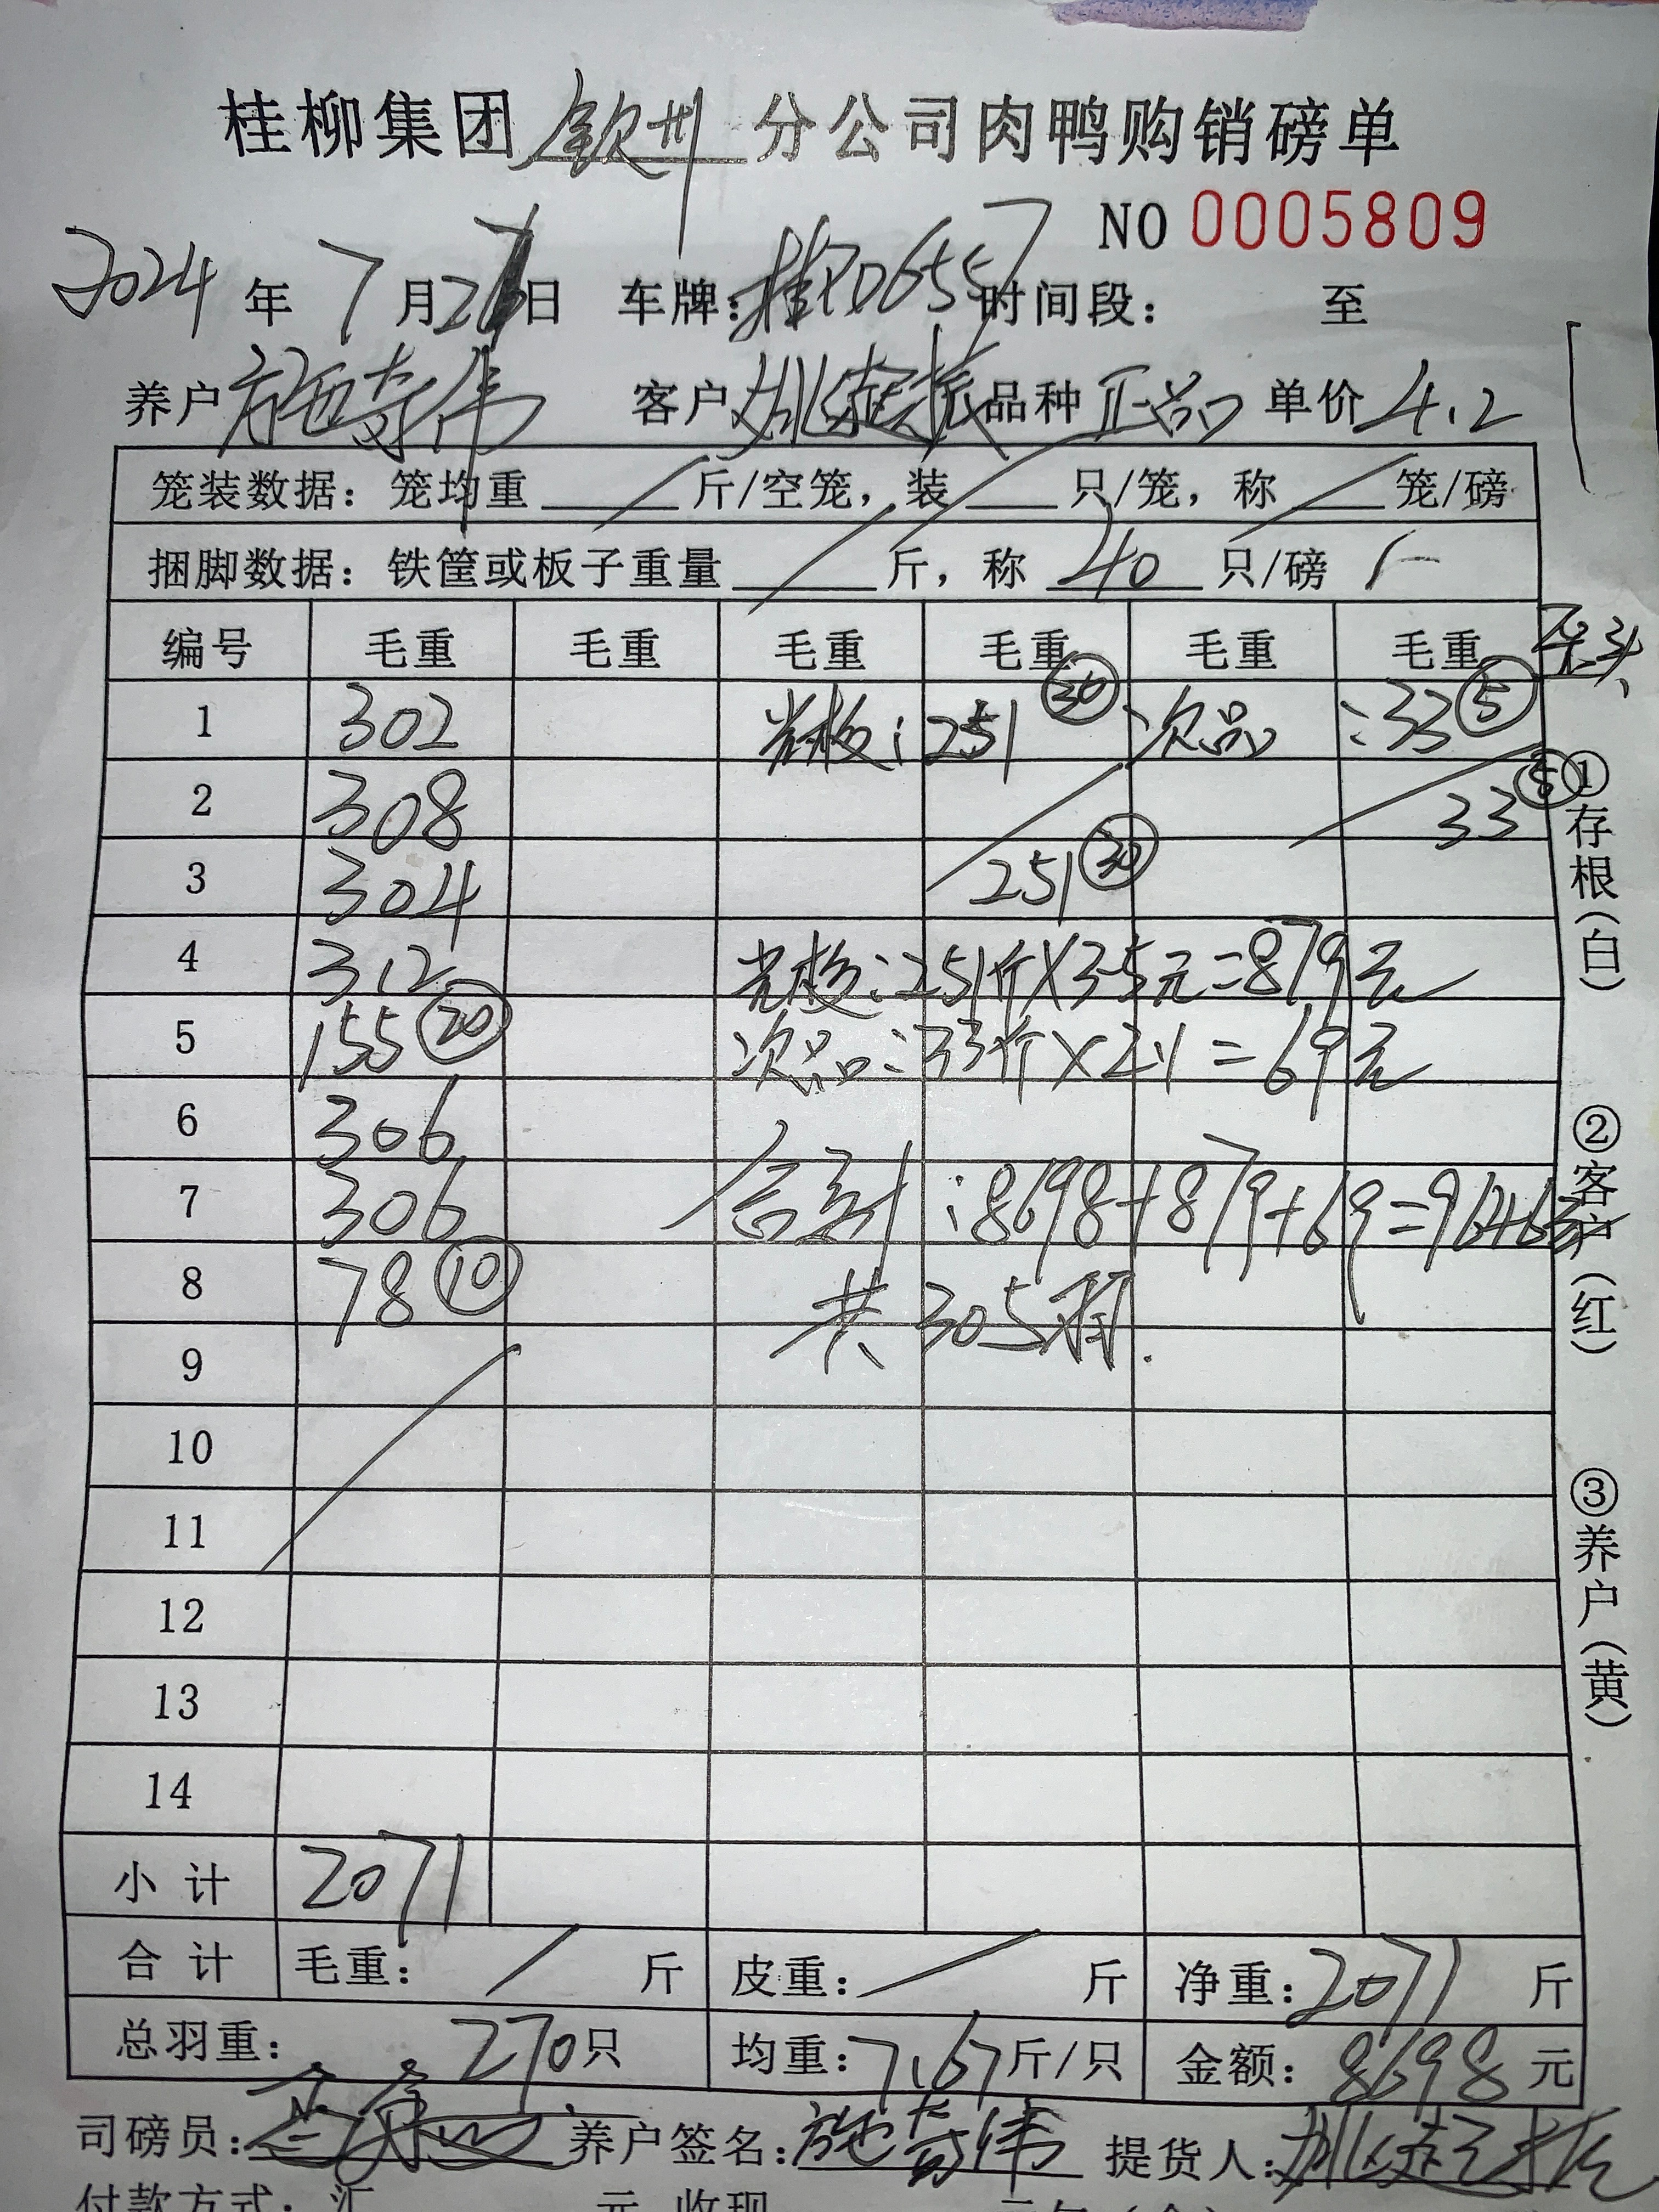 桂柳集团钦州分公司肉鸭购销磅单
NO 0005809
2024年7月2日 车牌:桂P06557时间段: 至
养户施奇伟 客户姚建振品种正品单价4.2
笼装数据:笼均重 / 斤/空笼,装 / 只/笼,称 / 笼/磅
捆脚数据:铁筐或板子重量 / 斤,称 40 只/磅
编号 毛重 毛重 毛重 毛重 毛重 毛重
1 302 : 251 30 次品 :33 5
2 308 33 5
3 304 251 30
4 312 :251斤×3.5元=879元
5 155 20 次品:33斤×2.1=69元
6 306
7 306 合计:8698+879+69=9646元
8 78 10 共305羽.
9
10
11
12
13
14
小计 2071
合计 毛重: / 斤 皮重: / 斤 净重:2071斤
总羽重: 270只 均重:7.67斤/只 金额:8698元
司磅员: 养户签名:施奇伟 提货人:姚建振
付款方式:汇 元 收现
①存根(白) ②客户(红) ③养户(黄)